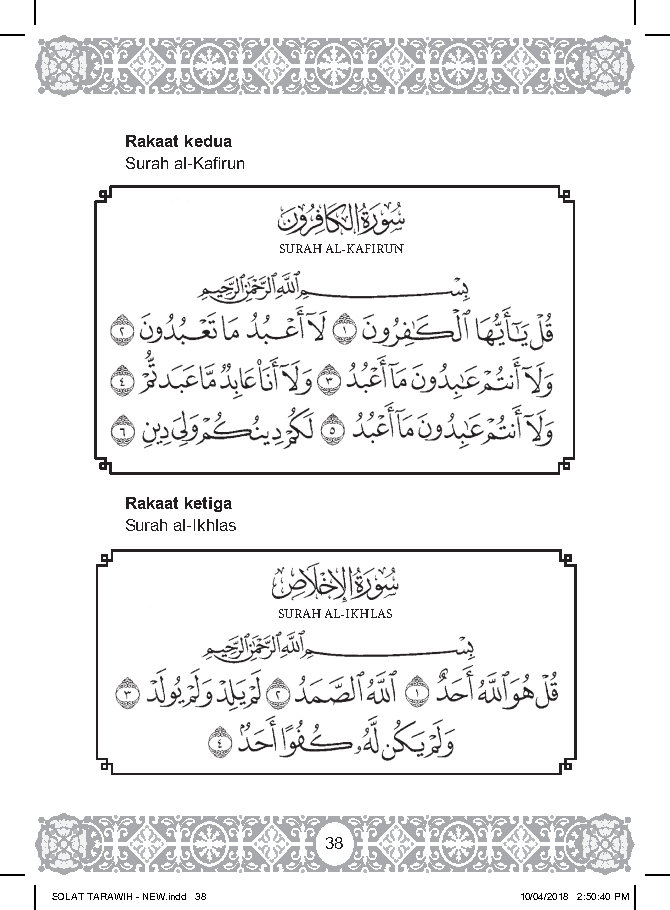 Rakaat kedua
Surah al-Kafirun
سُورَةُ الكَافِرُونَ
SURAH AL-KAFIRUN
بِسْمِ ٱللَّهِ ٱلرَّحْمَٰنِ ٱلرَّحِيمِ
قُلْ يَٰٓأَيُّهَا ٱلْكَٰفِرُونَ ١ لَآ أَعْبُدُ مَا تَعْبُدُونَ ٢
وَلَآ أَنتُمْ عَٰبِدُونَ مَآ أَعْبُدُ ٣ وَلَآ أَنَا۠ عَابِدٌ مَّا عَبَدتُّمْ ٤
وَلَآ أَنتُمْ عَٰبِدُونَ مَآ أَعْبُدُ ٥ لَكُمْ دِينُكُمْ وَلِىَ دِينِ ٦
Rakaat ketiga
Surah al-Ikhlas
سُورَةُ الإِخْلَاصِ
SURAH AL-IKHLAS
بِسْمِ ٱللَّهِ ٱلرَّحْمَٰنِ ٱلرَّحِيمِ
قُلْ هُوَ ٱللَّهُ أَحَدٌ ١ ٱللَّهُ ٱلصَّمَدُ ٢ لَمْ يَلِدْ وَلَمْ يُولَدْ ٣
وَلَمْ يَكُن لَّهُۥ كُفُوًا أَحَدٌۢ ٤
38
SOLAT TARAWIH - NEW.indd 38
10/04/2018 2:50:40 PM